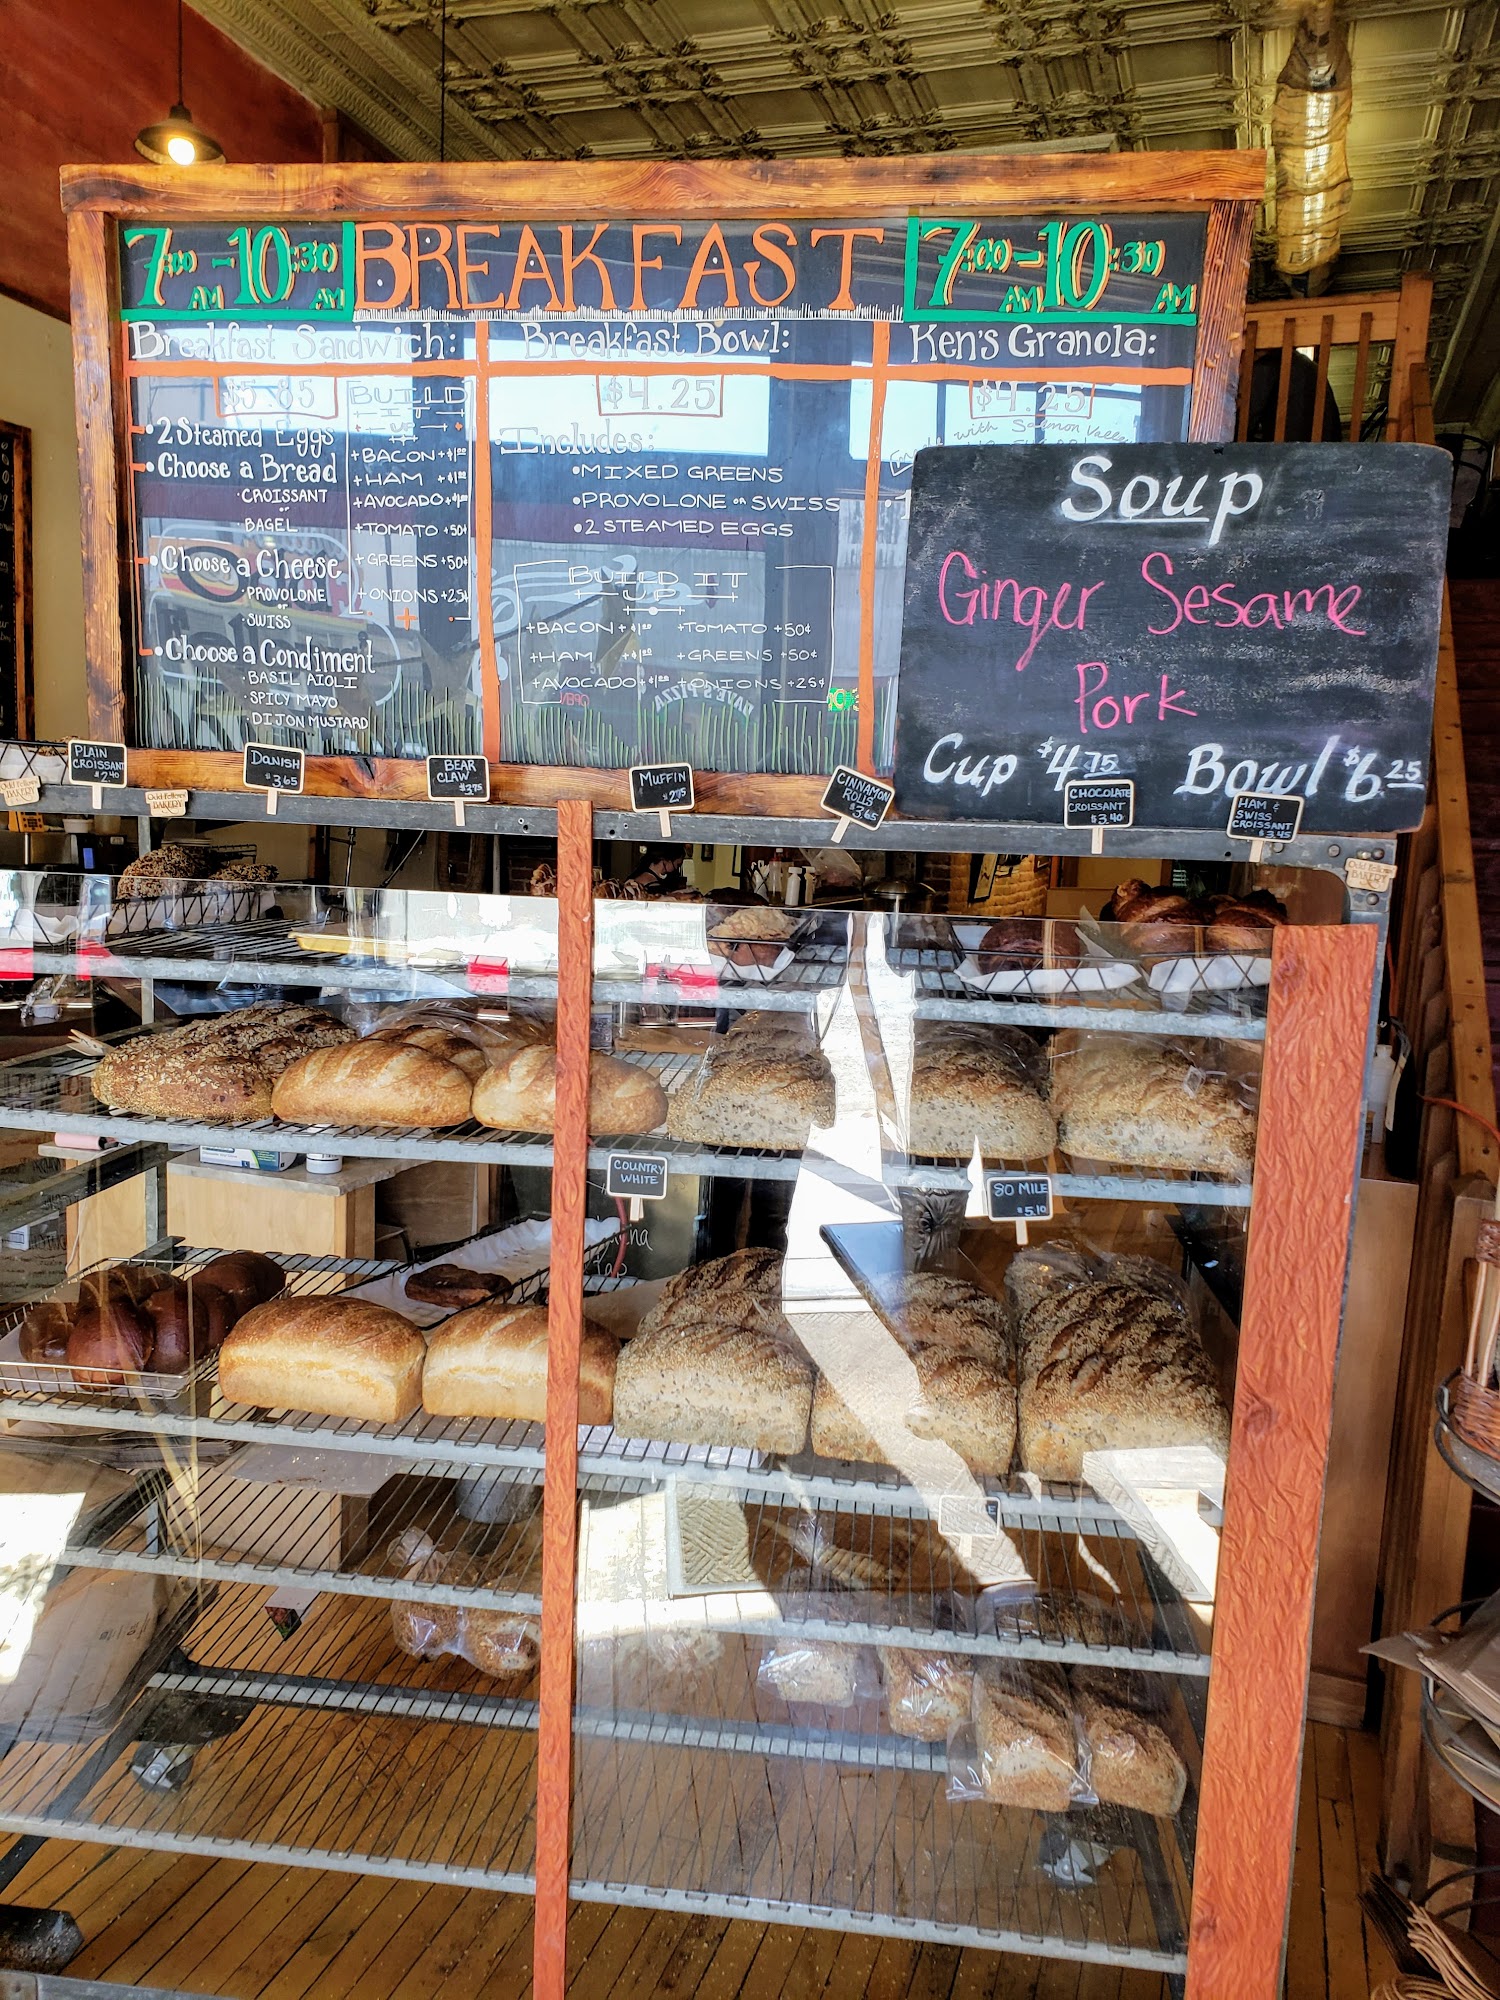 7:00 AM - 10:30 AM
BREAKFAST
7:00 AM - 10:30 AM
Breakfast Sandwich:
$5.85
• 2 Steamed Eggs
• Choose a Bread
· CROISSANT
or
· BAGEL
• Choose a Cheese
· PROVOLONE
or
· SWISS
• Choose a Condiment
· BASIL AIOLI
· SPICY MAYO
· DIJON MUSTARD
BUILD
IT
UP
+BACON +$1.00
+HAM +$1.00
+AVOCADO +$1.00
+TOMATO +50¢
+GREENS +50¢
+ONIONS +25¢
Breakfast Bowl:
$4.25
Includes:
• MIXED GREENS
• PROVOLONE or SWISS
• 2 STEAMED EGGS
BUILD IT
UP
+BACON +$1.00 +TOMATO +50¢
+HAM +$1.00 +GREENS +50¢
+AVOCADO +$1.00 +ONIONS +25¢
DAVE'S PIZZA
Ken's Granola:
$4.25
with Salmon Valley
Soup
Ginger Sesame
Pork
Cup $4.75 Bowl $6.25
PLAIN
CROISSANT
$2.40
DANISH
$3.65
BEAR
CLAW
$3.75
MUFFIN
$2.95
CINNAMON
ROLLS
$3.65
CHOCOLATE
CROISSANT
$3.40
HAM &
SWISS
CROISSANT
$3.45
Odd Fellows
BAKERY
Odd Fellows
BAKERY
Odd Fellows
BAKERY
COUNTRY
WHITE
80 MILE
$5.10